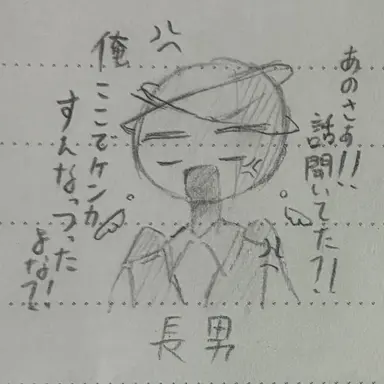 あのさぁ!!
話聞いてた?!
俺
ここでケンカ
すんなっつった
よな?!
長男